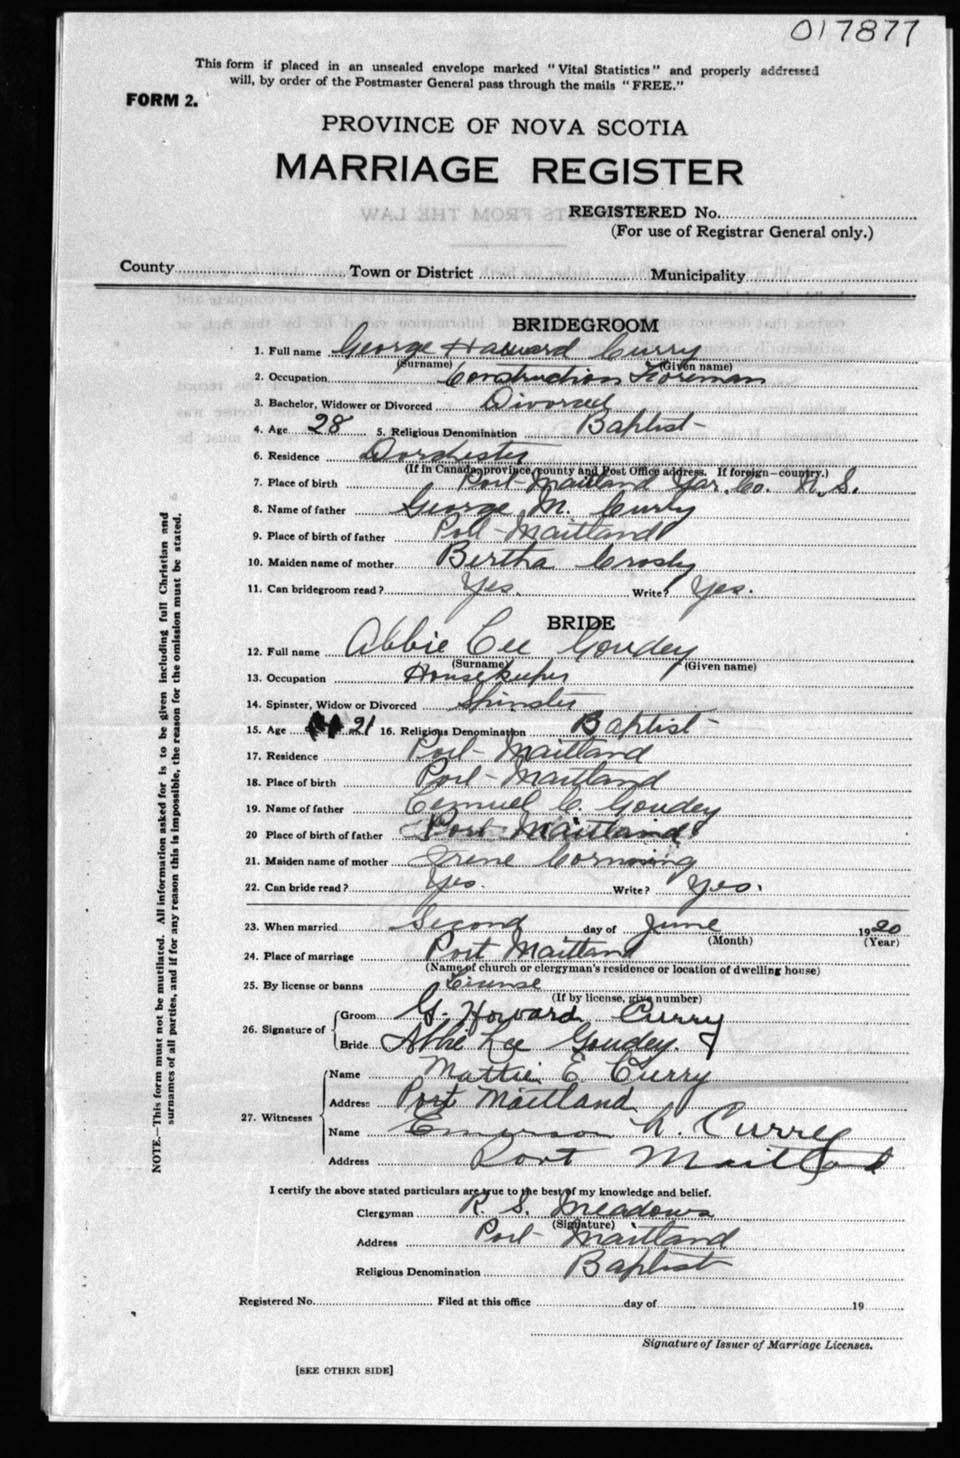 017877
This form if placed in an unsealed envelope marked "Vital Statistics" and properly addressed
will, by order of the Postmaster General pass through the mails "FREE."
FORM 2.
PROVINCE OF NOVA SCOTIA
MARRIAGE REGISTER
REGISTERED No.
(For use of Registrar General only.)
County Town or District Municipality
BRIDEGROOM
1. Full name George Howard Curry
(Surname) (Given name)
2. Occupation Construction Foreman
3. Bachelor, Widower or Divorced Divorced
4. Age 28 5. Religious Denomination Baptist
6. Residence Dorchester
(If in Canada, province, county and Post Office address. If foreign—country.)
7. Place of birth Port Maitland Yar. Co. N. S.
8. Name of father George M. Curry
9. Place of birth of father Port Maitland
10. Maiden name of mother Bertha Crosby
11. Can bridegroom read? Yes. Write? Yes.
BRIDE
12. Full name Abbie Lee Goudey
(Surname) (Given name)
13. Occupation Housekeeper
14. Spinster, Widow or Divorced Spinster
15. Age 21 16. Religious Denomination Baptist
17. Residence Port Maitland
18. Place of birth Port Maitland
19. Name of father Lemuel C. Goudey
20 Place of birth of father Port Maitland
21. Maiden name of mother Irene Corning
22. Can bride read? Yes. Write? Yes.
23. When married Second day of June 1920
(Month) (Year)
24. Place of marriage Port Maitland
(Name of church or clergyman's residence or location of dwelling house)
25. By license or banns License
(If by license, give number)
26. Signature of Groom G. Howard Curry
Bride Abbie Lee Goudey.
27. Witnesses Name Mattie E Curry
Address Port Maitland
Name Emerson L. Curry
Address Port Maitland
I certify the above stated particulars are true to the best of my knowledge and belief.
Clergyman R. S. Meadows
(Signature)
Address Port Maitland
Religious Denomination Baptist
Registered No. Filed at this office day of 19
Signature of Issuer of Marriage Licenses.
[SEE OTHER SIDE]
NOTE.—This form must not be mutilated. All information asked for is to be given including full Christian and
surnames of all parties, and if for any reason this is impossible, the reason for the omission must be stated.